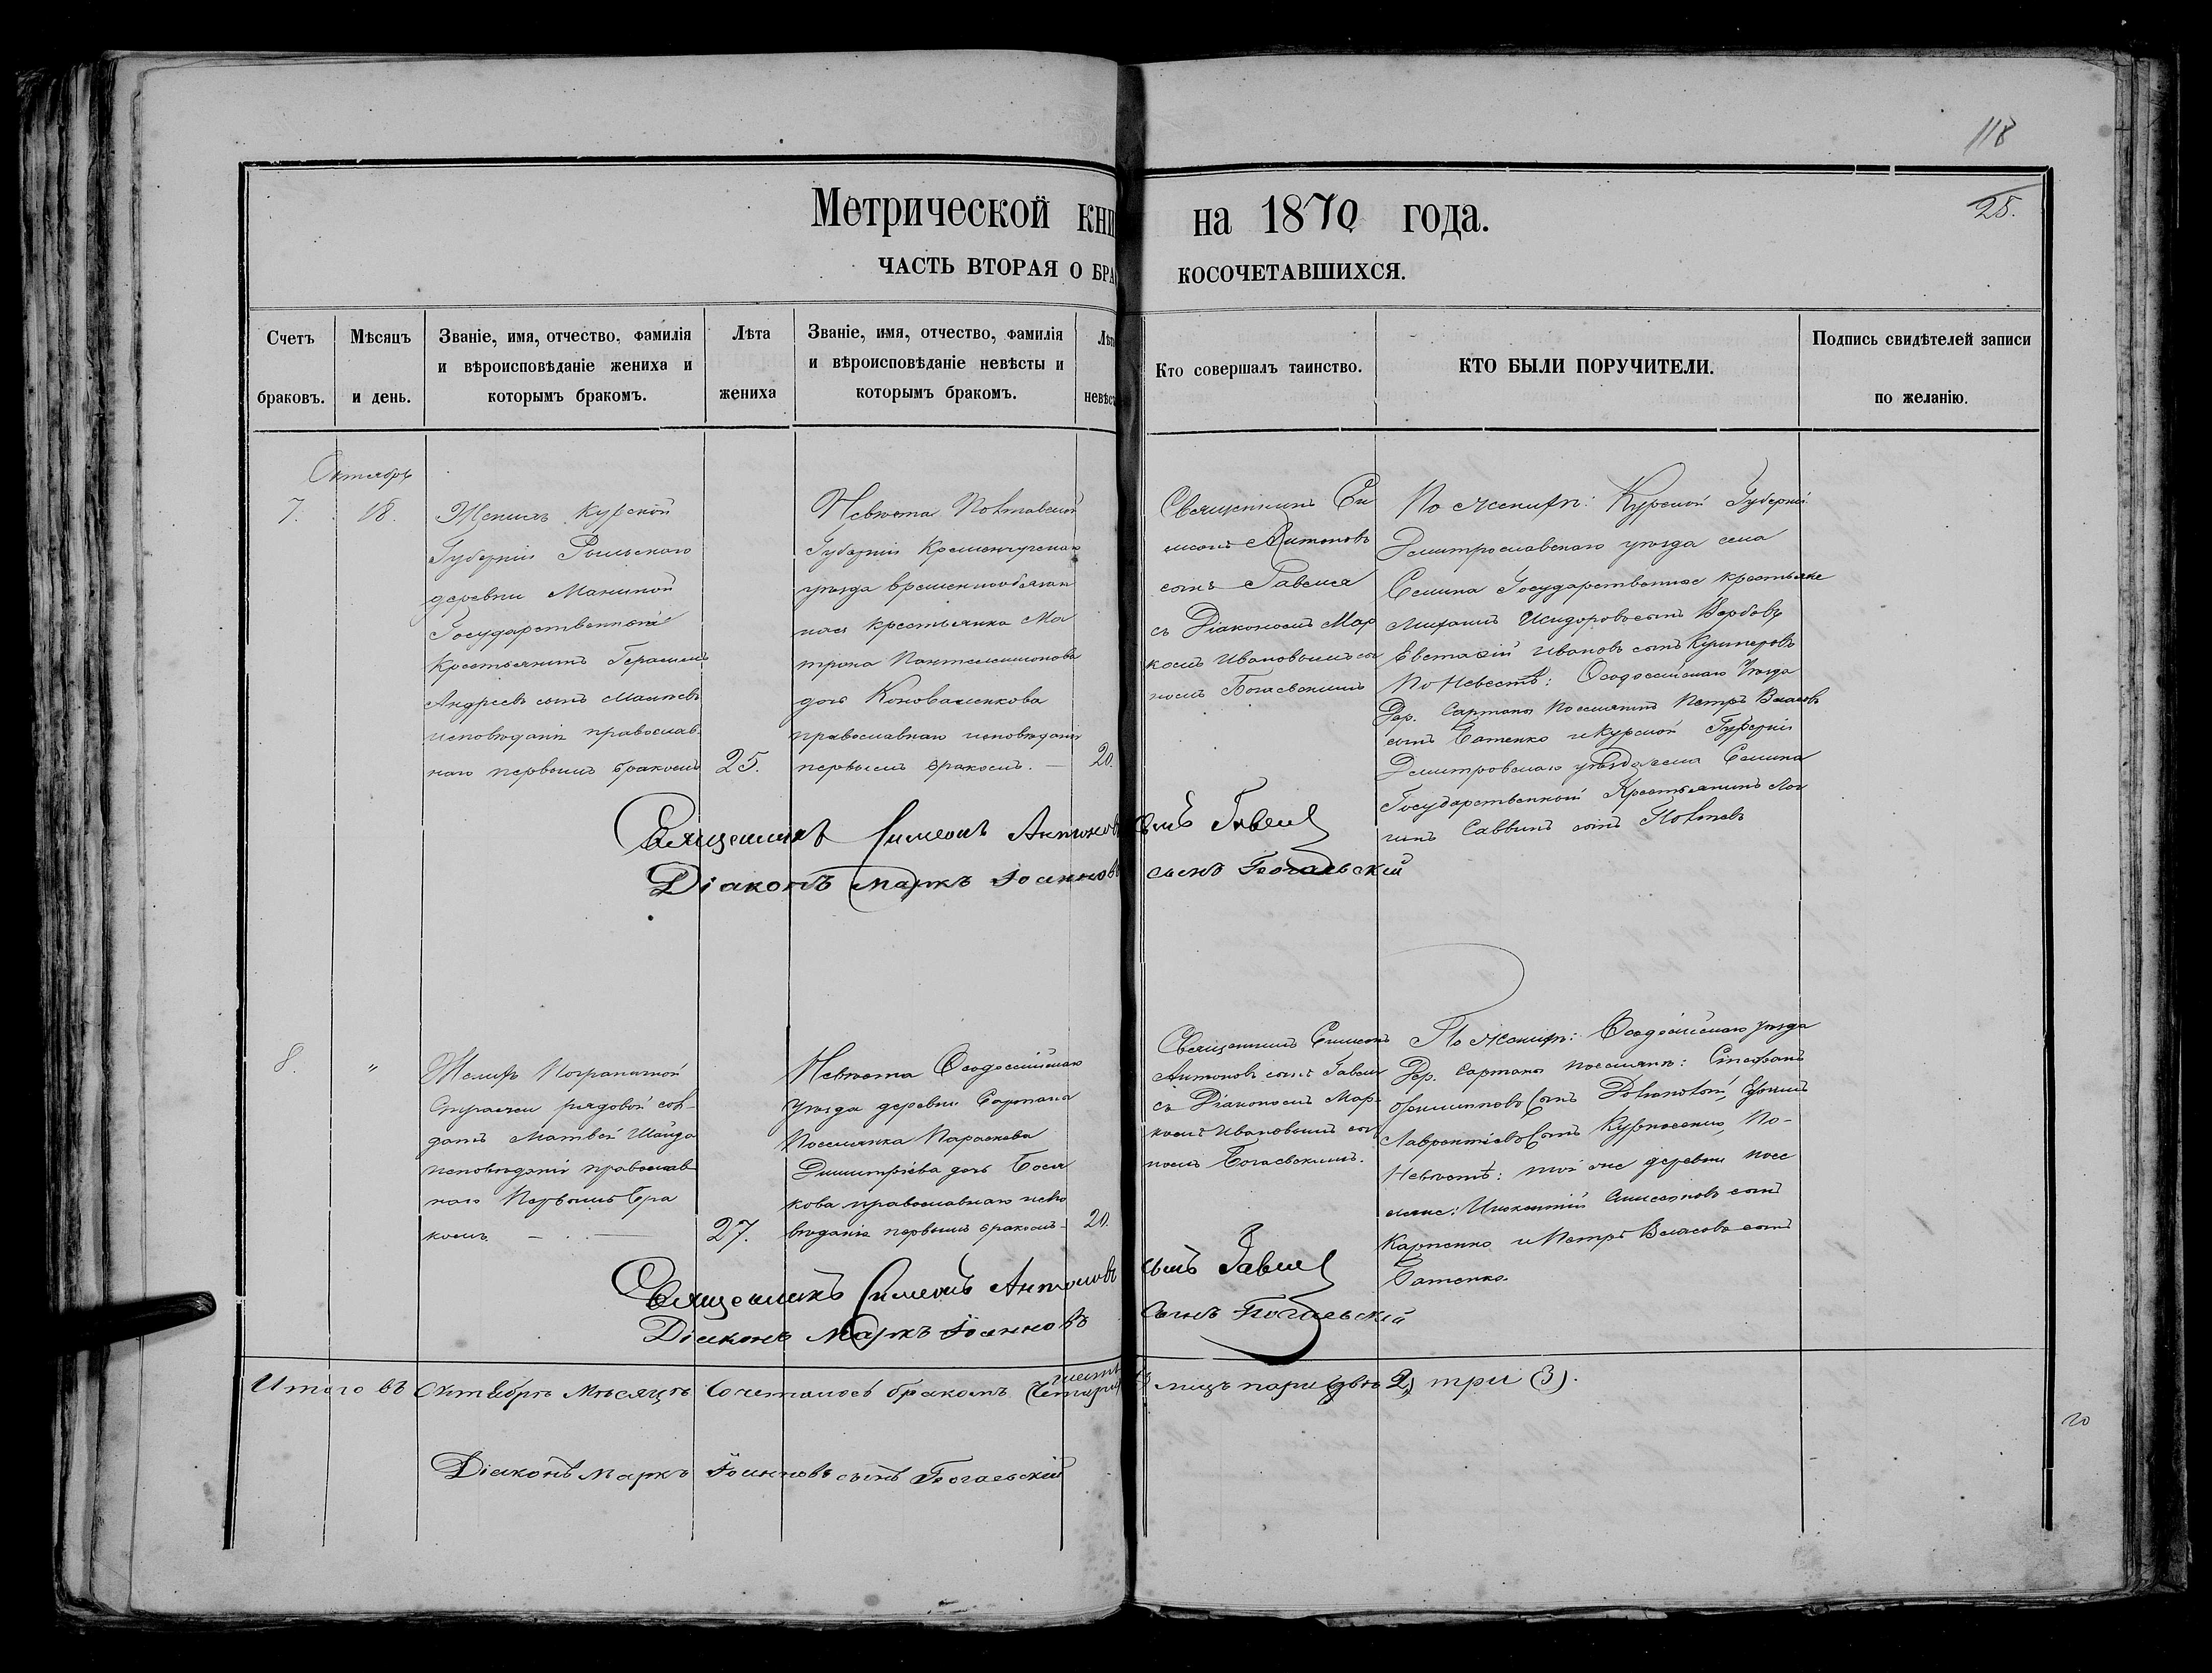 118
25.
Метрической кни на 1870 года.
ЧАСТЬ ВТОРАЯ О БРАКОСОЧЕТАВШИХСЯ.
Счетъ браковъ.
Мѣсяцъ и день.
Званіе, имя, отчество, фамилія
и вѣроисповѣданіе жениха и
которымъ бракомъ.
Лѣта жениха
Званіе, имя, отчество, фамилія
и вѣроисповѣданіе невѣсты и
которымъ бракомъ.
Лѣта невѣст
Кто совершалъ таинство.
КТО БЫЛИ ПОРУЧИТЕЛИ.
Подпись свидѣтелей записи
по желанію.
Октябрь
7.
18.
Женихъ Курской
Губерніи Рыльскаго
деревни Маниной
Государственный
Крестьянинъ Герасимъ
Андреевъ сынъ
исповѣданія православ-
наго первымъ бракомъ
25.
Невѣста Полтавской
Губерніи Кременчугскаго
уѣзда временнообязан
ная крестьянка Ма
трона Пантелеимонова
дочь Коноваленкова
православнаго исповѣданія
первымъ бракомъ. —
20.
Священникъ Си
меонъ Антоновъ
сынъ Гавеля
съ Діакономъ Мар
комъ Ивановымъ сы
номъ Богаевскимъ
По женихѣ: Курской Губерніи
Дмитрославскаго уѣзда села
Селина Государственные крестьяне
Исидоровъ сынъ
Евстафій Ивановъ сынъ
По Невестѣ: Ѳеодосійскаго Уѣзда
Дер. Сартаны Поселянинъ Петръ Власовъ
сынъ Батенко и Курской Губерніи
Дмитровскаго уѣзда села Селина
Государственной Крестьянинъ Лог
гинъ Саввинъ сынъ
Священникъ Симеонъ Антоновъ сынъ Гавеля
Діаконъ Маркъ Іоанновъ сынъ Богаевскій
8.
"
Женихъ Пограничной
Стражи рядовой сол-
датъ Матвей Шайда
исповѣданія православ
наго Первымъ бра
комъ. — . —
27.
Невѣста Ѳеодосійскаго
Уѣзда деревни Сартана
Поселянка Параскева
Димитріева дочь
кова православнаго испо
вѣданія первымъ бракомъ —
20.
Священникъ Симеонъ
Антоновъ сынъ Гавеля
съ Діакономъ Мар-
комъ Ивановымъ сы
номъ Богаевскимъ.
По женихѣ: Ѳеодосійскаго уѣзда
Дер. Сартаны поселяне: Стефанъ
сынъ
Лаврентіевъ сынъ По-
Невѣстѣ: той же деревни посе
ляне: сынъ
Карпенко и Петръ Власовъ сынъ
Батенко.
Священникъ Симеонъ Антоновъ сынъ Гавеля
Діаконъ Маркъ Іоанновъ сынъ Богаевскій
Итого въ Октябрѣ Мѣсяцѣ сочеталось бракомъ лицъ пари (двѣ 2) три (3).
Діаконъ Маркъ Іоанновъ сынъ Богаевскій